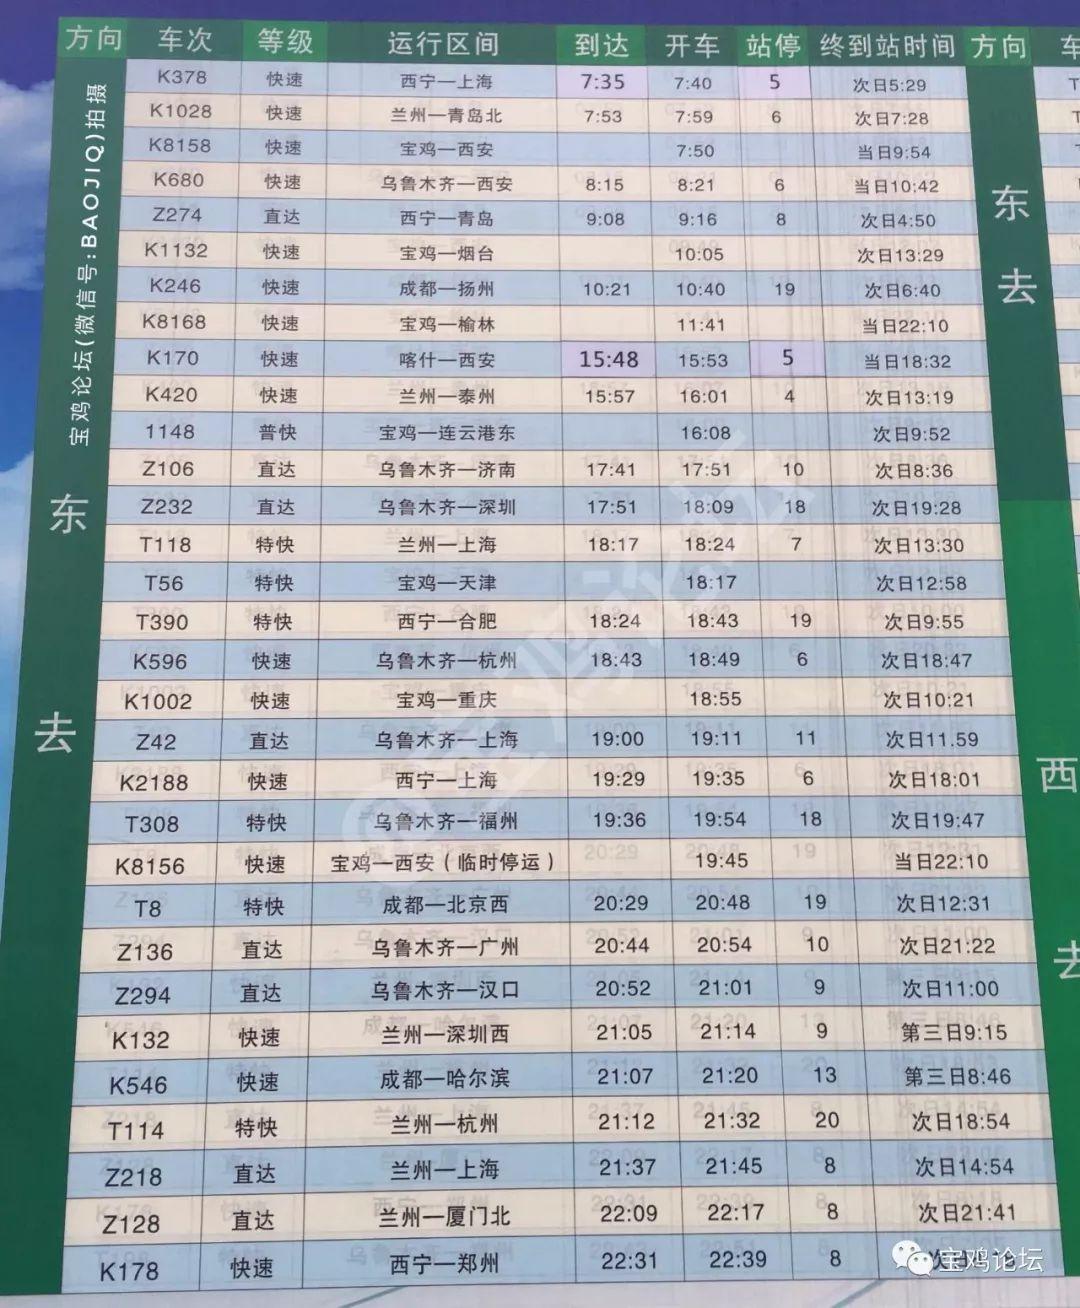 方向 车次 等级 运行区间 到达 开车 站停 终到站时间 方向 车
K378 快速 西宁—上海 7:35 7:40 5 次日5:29
K1028 快速 兰州—青岛北 7:53 7:59 6 次日7:28
K8158 快速 宝鸡—西安 7:50 当日9:54
K680 快速 乌鲁木齐—西安 8:15 8:21 6 当日10:42
Z274 直达 西宁—青岛 9:08 9:16 8 次日4:50
K1132 快速 宝鸡—烟台 10:05 次日13:29
K246 快速 成都—扬州 10:21 10:40 19 次日6:40
K8168 快速 宝鸡—榆林 11:41 当日22:10
K170 快速 喀什—西安 15:48 15:53 5 当日18:32
K420 快速 兰州—泰州 15:57 16:01 4 次日13:19
1148 普快 宝鸡—连云港东 16:08 次日9:52
Z106 直达 乌鲁木齐—济南 17:41 17:51 10 次日8:36
Z232 直达 乌鲁木齐—深圳 17:51 18:09 18 次日19:28
T118 特快 兰州—上海 18:17 18:24 7 次日13:30
T56 特快 宝鸡—天津 18:17 次日12:58
T390 特快 西宁—合肥 18:24 18:43 19 次日9:55
K596 快速 乌鲁木齐—杭州 18:43 18:49 6 次日18:47
K1002 快速 宝鸡—重庆 18:55 次日10:21
Z42 直达 乌鲁木齐—上海 19:00 19:11 11 次日11.59
K2188 快速 西宁—上海 19:29 19:35 6 次日18:01
T308 特快 乌鲁木齐—福州 19:36 19:54 18 次日19:47
K8156 快速 宝鸡—西安(临时停运) 19:45 当日22:10
T8 特快 成都—北京西 20:29 20:48 19 次日12:31
Z136 直达 乌鲁木齐—广州 20:44 20:54 10 次日21:22
Z294 直达 乌鲁木齐—汉口 20:52 21:01 9 次日11:00
K132 快速 兰州—深圳西 21:05 21:14 9 第三日9:15
K546 快速 成都—哈尔滨 21:07 21:20 13 第三日8:46
T114 特快 兰州—杭州 21:12 21:32 20 次日18:54
Z218 直达 兰州—上海 21:37 21:45 8 次日14:54
Z128 直达 兰州—厦门北 22:09 22:17 8 次日21:41
K178 快速 西宁—郑州 22:31 22:39 8
宝鸡论坛(微信号:BAOJIQ)拍摄
东去
东去
西去
宝鸡论坛